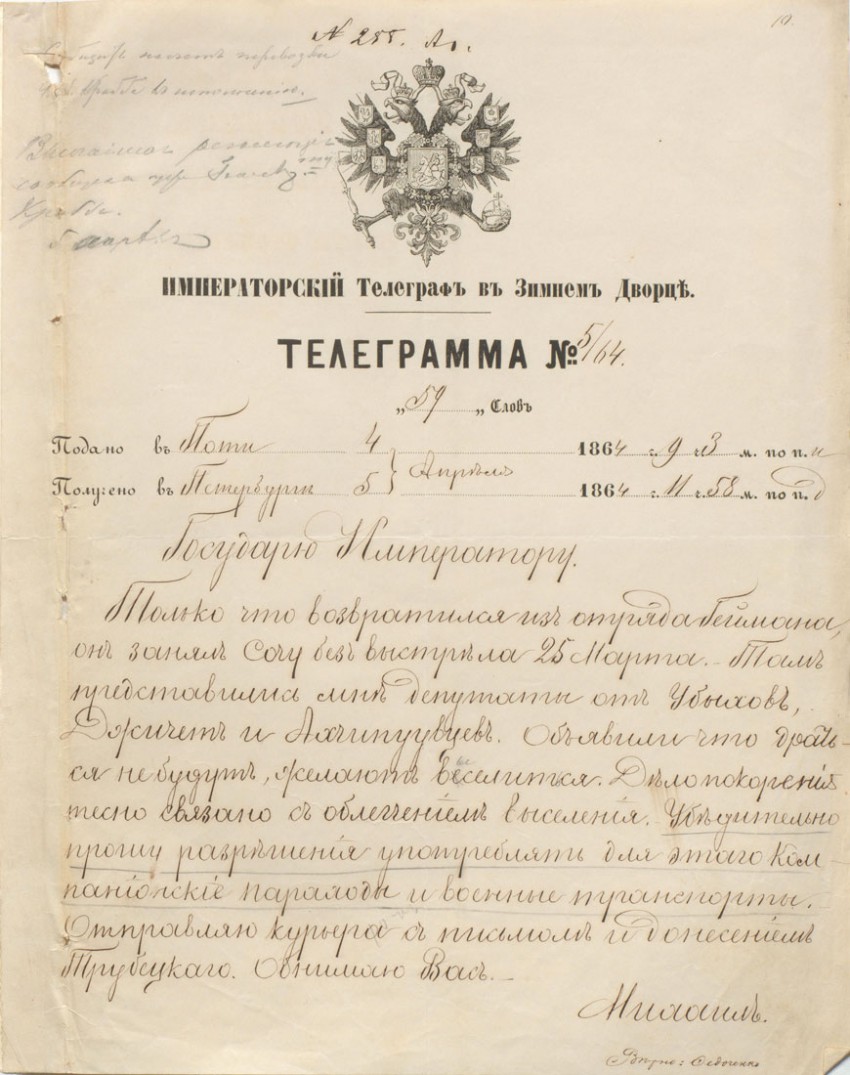 N 255. Ар.
10.
ИМПЕРАТОРСКІЙ Телеграфъ въ Зимнемъ Дворцѣ.
ТЕЛЕГРАММА № 5/64.
„ 59 „ Словъ
Подано въ Поти 4 Апрѣля 1864 г. 9 ч. 3 м. по п. н
Получено въ Петербургѣ 5 1864 г. 11 ч. 58 м. по п. д
Государю Императору.
Только что возвратился изъ отряда Геймана,
онъ занялъ Сочу безъ выстрѣла 25 Марта. Тамъ
представились мнѣ депутаты отъ Убыховъ,
Джигетъ и Ахчипхувцевъ. Объявили что драть-
ся не будутъ, желаютъ выселиться. Дѣло покоренія
тесно связано съ облегченіемъ выселенія. Убѣдительно
прошу разрѣшенія употреблять для этаго Ком-
панiонскіе пароходы и военные транспорты.
Отправляю курьера съ писмомъ и донесеніемъ
Трубецкаго. Обнимаю Васъ.
Михаилъ.
Вѣрно: Федоченко